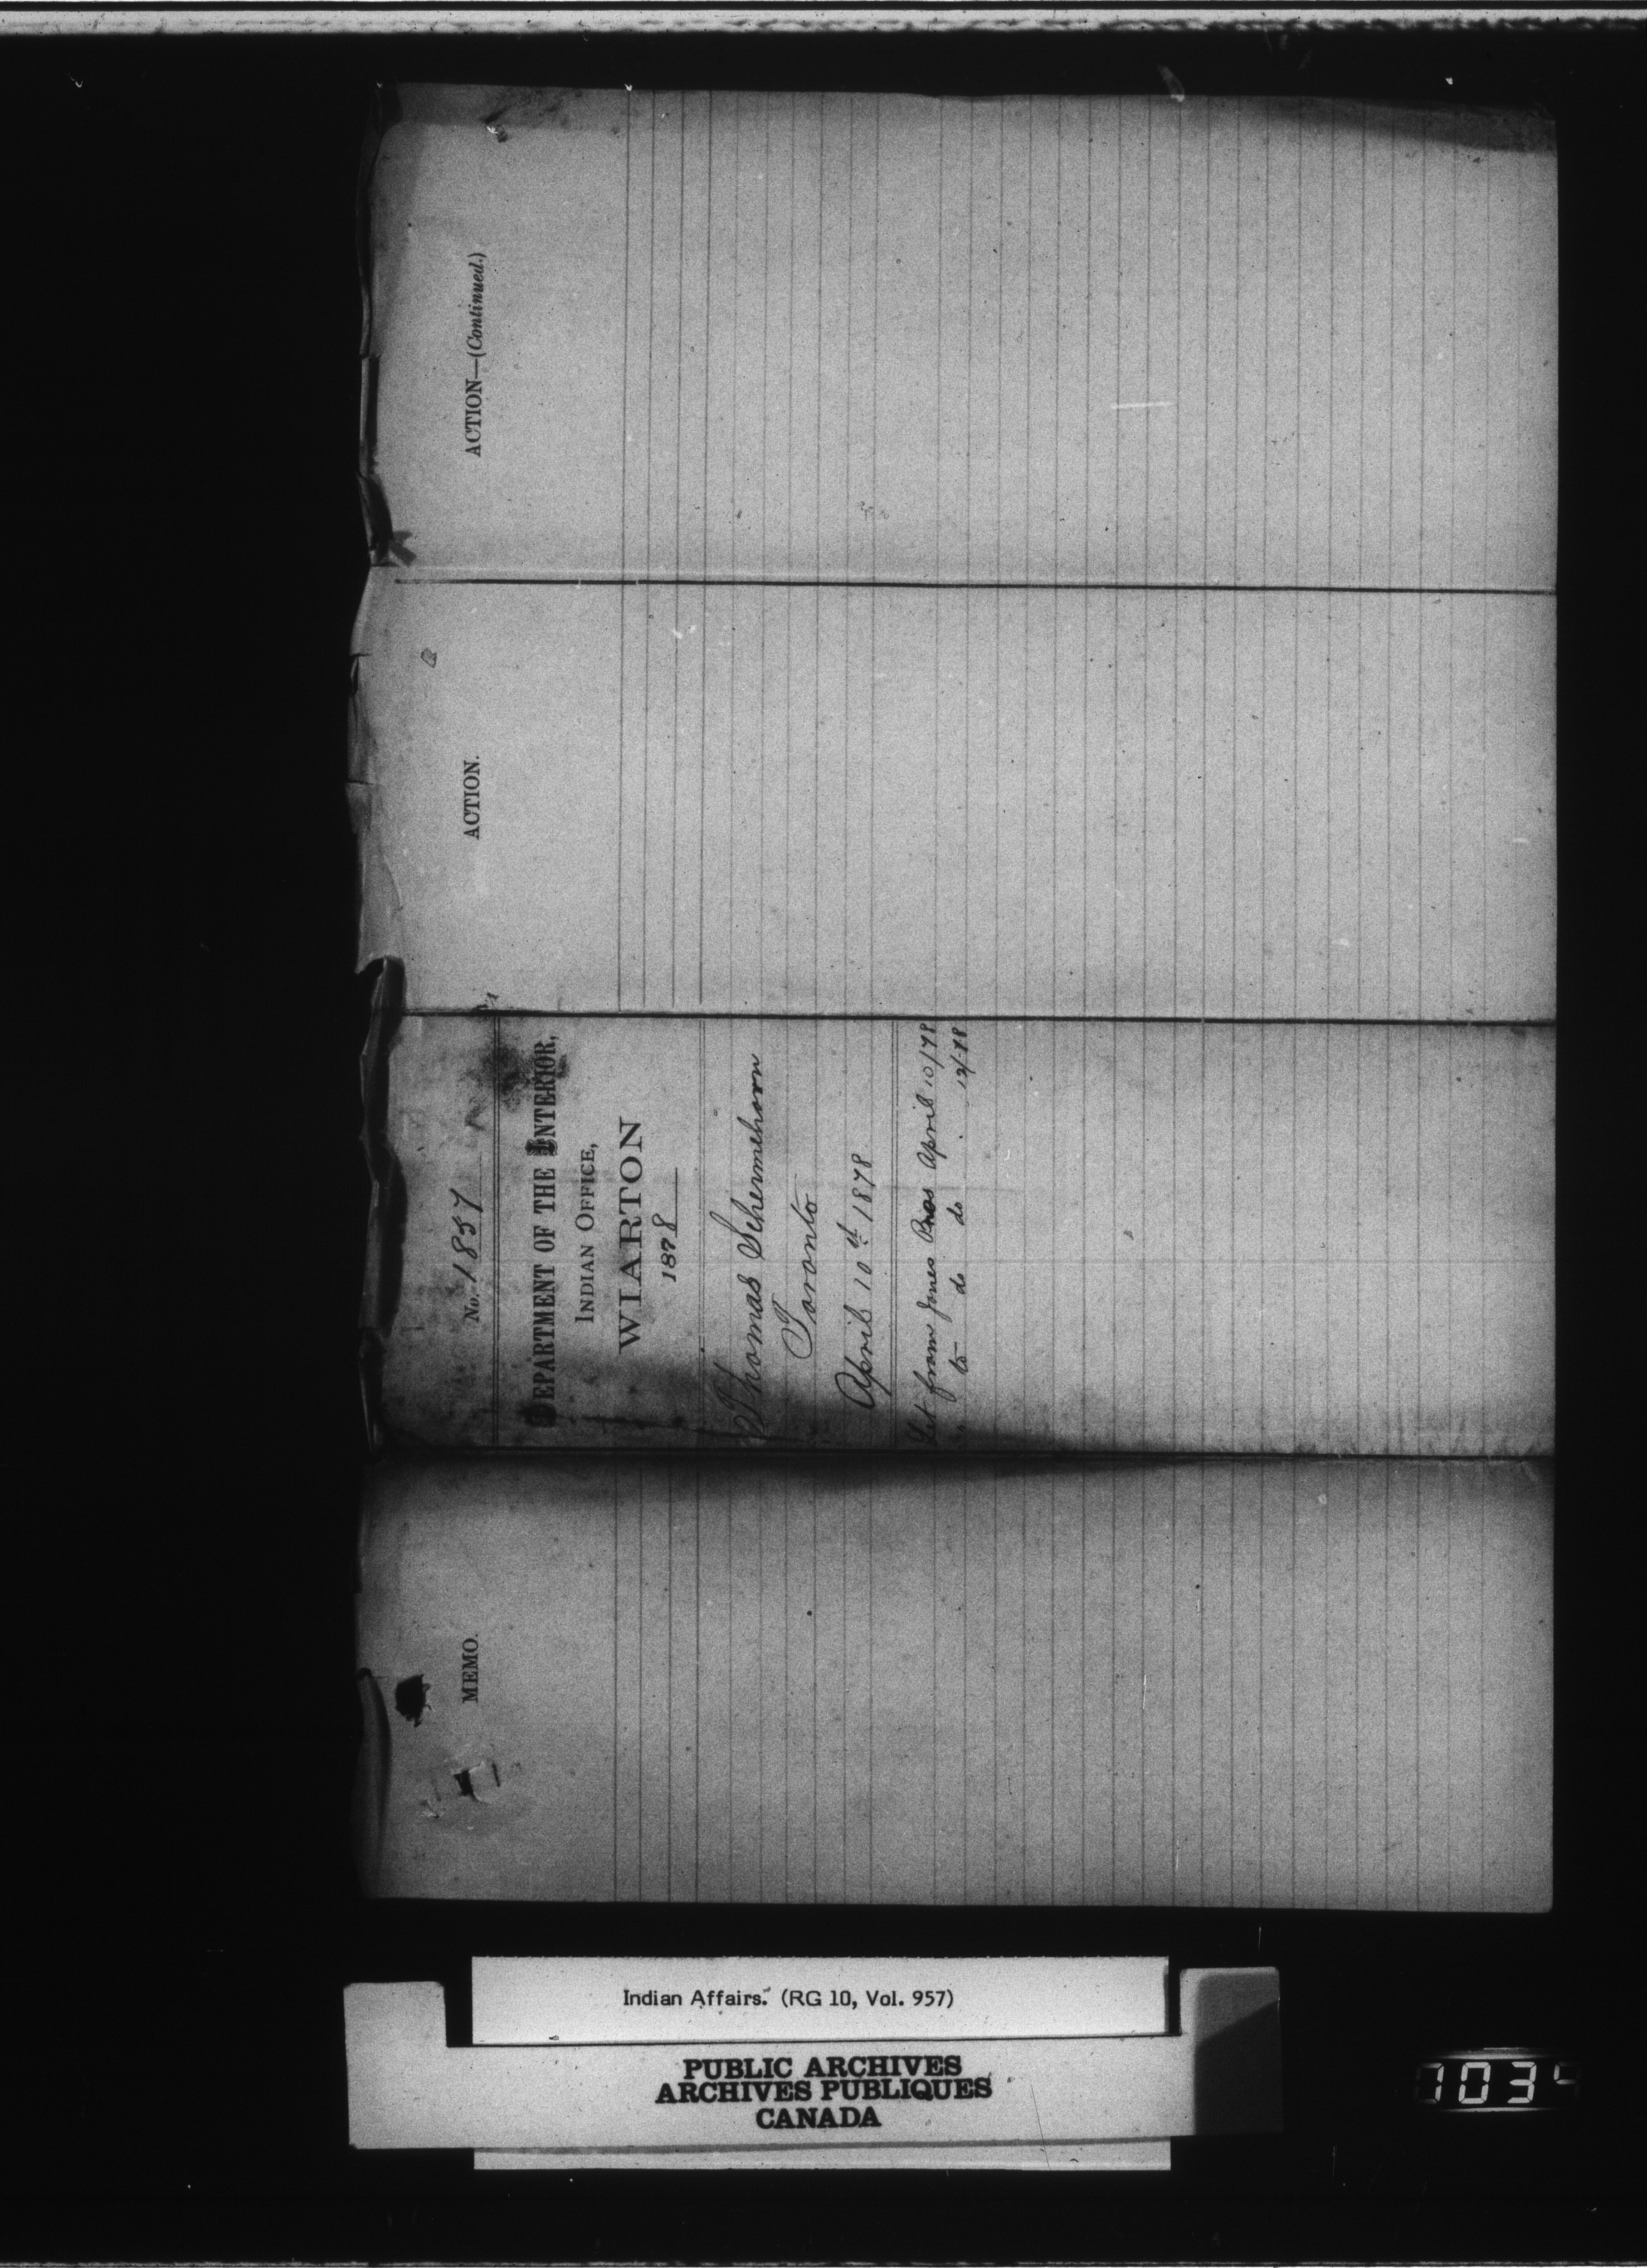 ACTION—(Continued.)
ACTION.
No. 1857
DEPARTMENT OF THE INTERIOR,
INDIAN OFFICE,
WIARTON
1878
Thomas Schermehorn
Toronto
April 10th 1878
Let from Jones Bros April 10/78
" to do do . 12/78
MEMO.
Indian Affairs. (RG 10, Vol. 957)
PUBLIC ARCHIVES
ARCHIVES PUBLIQUES
CANADA